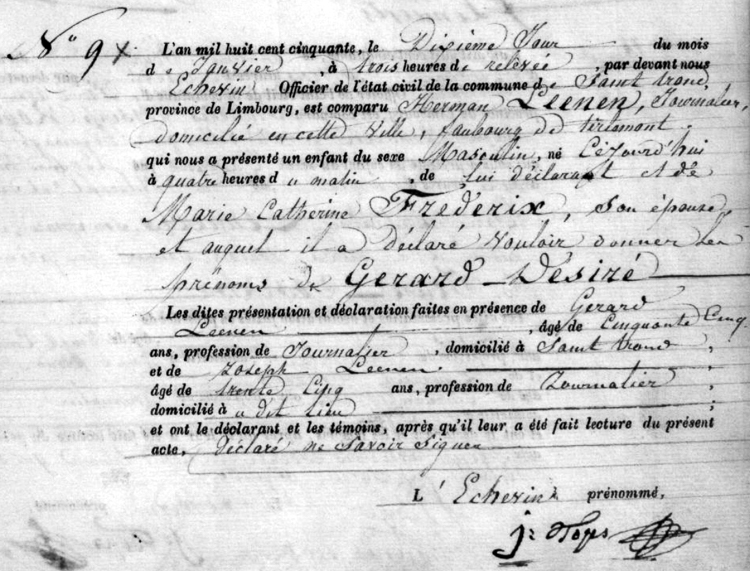 N° 9
L'an mil huit cent cinquante, le Dixième Jour du mois
de Janvier, à trois heures de relevée, par devant nous
Echevin Officier de l'état civil de la commune de Saint trond,
province de Limbourg, est comparu Herman Leenen, Journalier,
domicilié en cette Ville, faubourg de tirlemont,
qui nous a présenté un enfant du sexe Masculin, né Cejourd'hui
à quatre heures du matin, de lui déclarant et de
Marie Catherine Frederix, son épouse
et auquel il a déclaré vouloir donner les
prénoms de Gerard Désiré
Les dites présentation et déclaration faites en présence de Gerard
Leenen, âgé de Cinquante Cinq
ans, profession de Journalier, domicilié à Saint trond;
et de Joseph Leenen
âgé de trente Cinq ans, profession de Journalier;
domicilié à u dit lieu;
et ont le déclarant et les témoins, après qu'il leur a été fait lecture du présent
acte, déclaré ne Savoir Signer
L'Echevin prénommé,